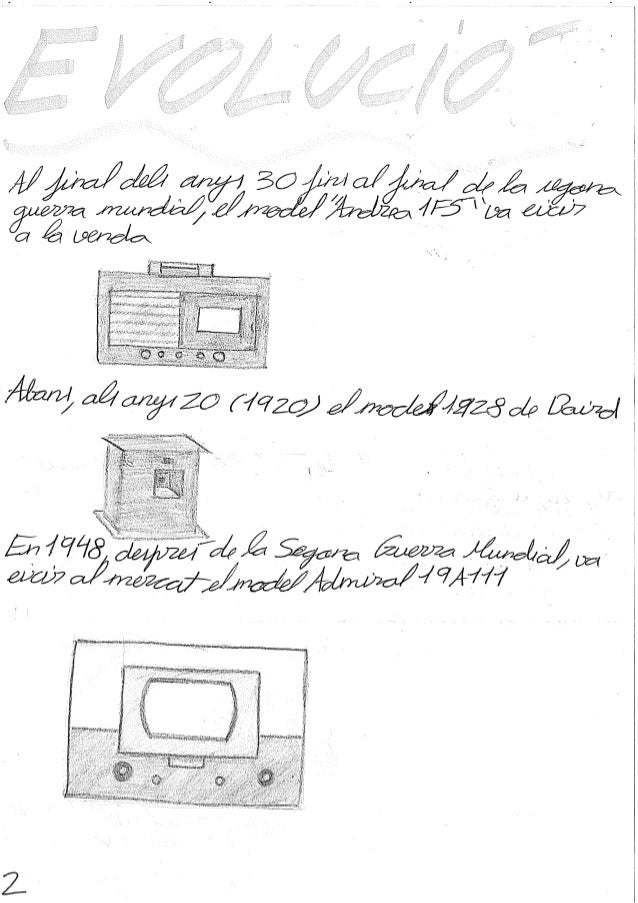 EVOLUCIÓ
Al final dels anys 30 fins al final de la segona
guerra mundial, el model "Andrea 1F5" va eixir
a la venda
Abans, als anys 20 (1920) el model 1928 de Baird
En 1948, després de la Segona Guerra Mundial, va
eixir al mercat el model Admiral 19A111
2